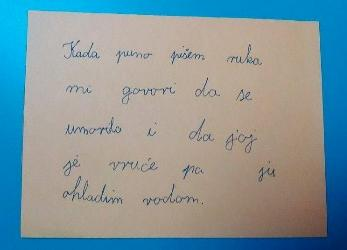 Kada puno pišem ruka
mi govori da se
umorila i da joj
je vruće pa ju
ohladim vodom.